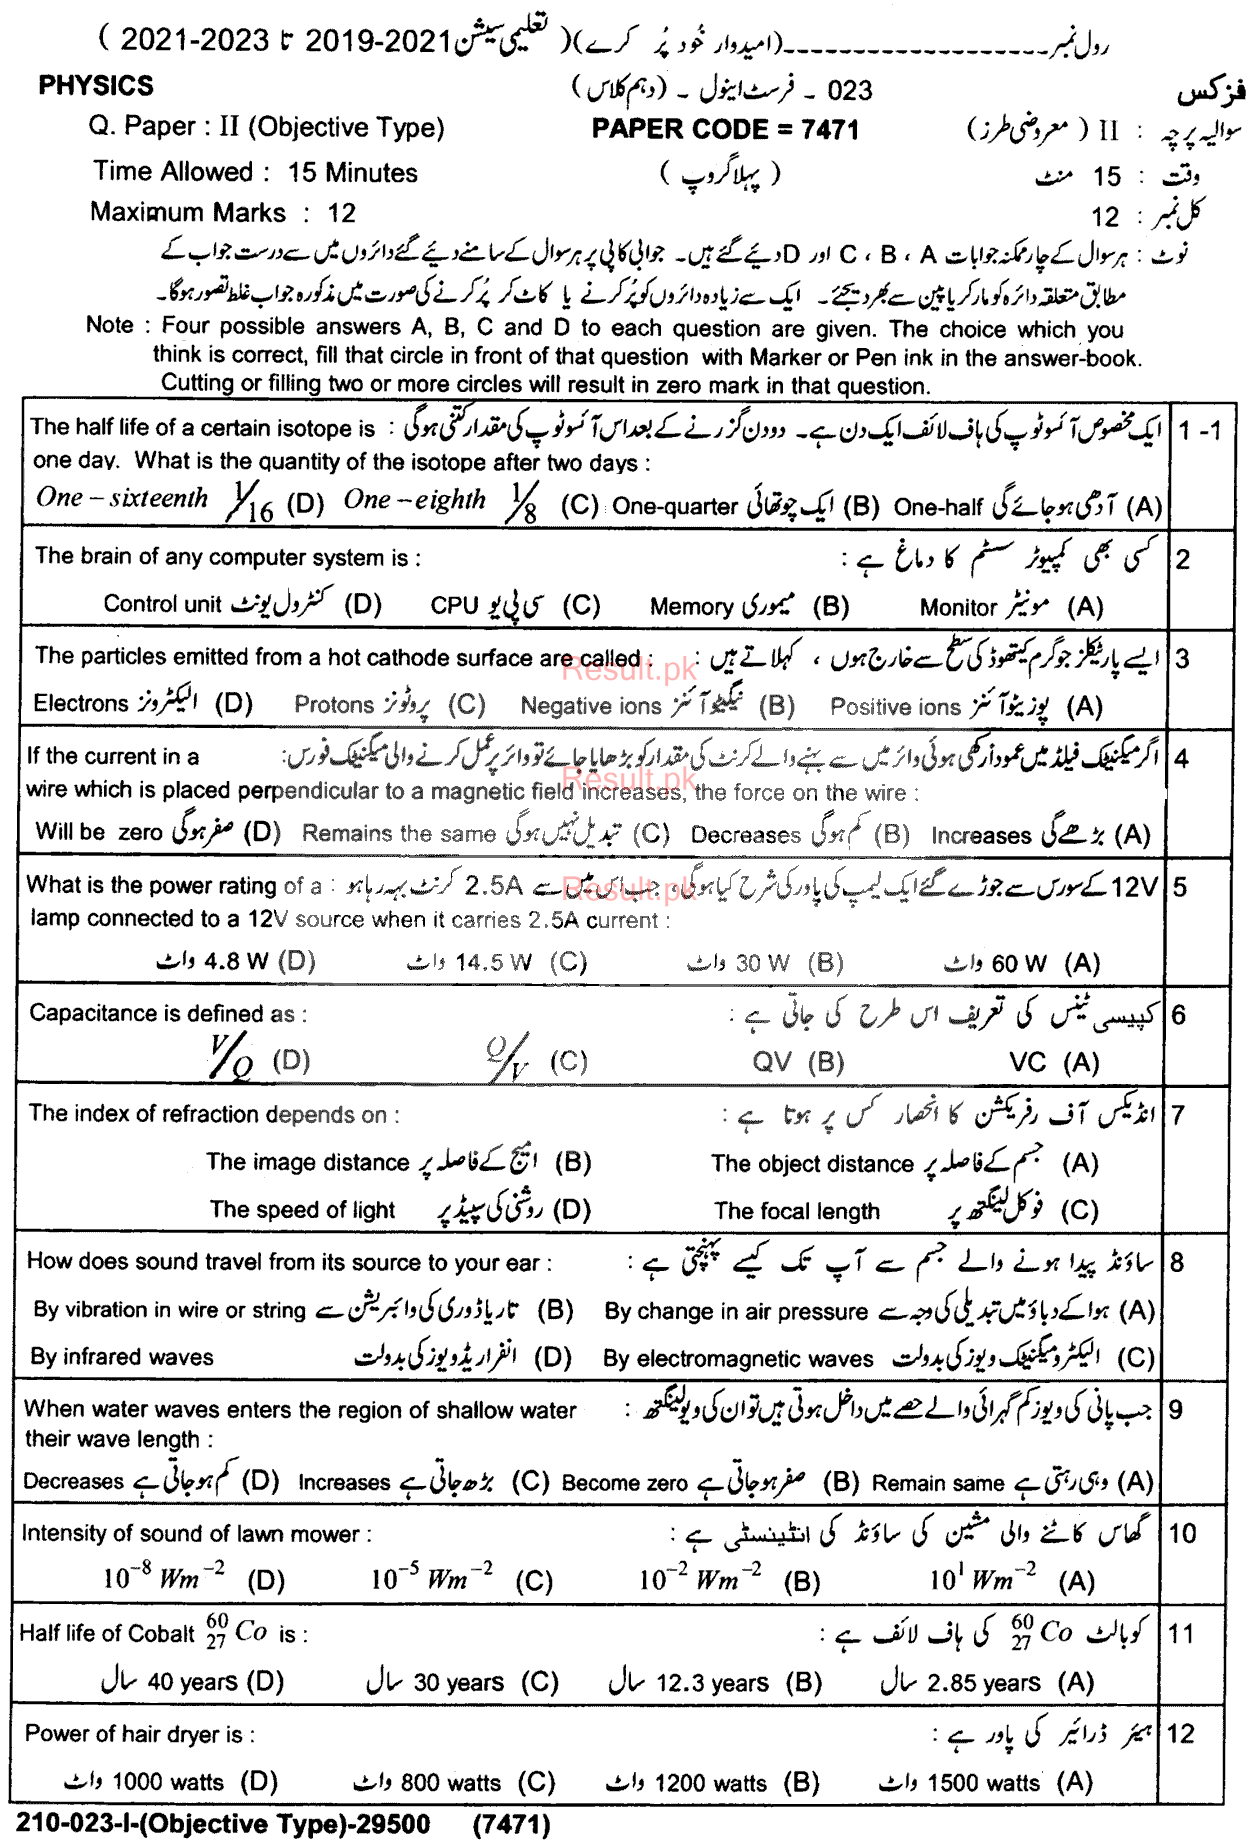 رول نمبر ـــــــــــــــــــــ (امیدوار خُود پُر کرے) ( تعلیمی سیشن 2021-2019 تا 2023-2021 )
PHYSICS 023 ـ فرسٹ اینول ـ (دہم کلاس) فزکس
Q. Paper : II (Objective Type) PAPER CODE = 7471 سوالیہ پرچہ : II ( معروضی طرز )
Time Allowed : 15 Minutes ( پہلا گروپ ) وقت : 15 منٹ
Maximum Marks : 12 کل نمبر : 12
نوٹ : ہر سوال کے چار ممکنہ جوابات A ، B ، C اور D دیئے گئے ہیں۔ جوابی کاپی پر ہر سوال کے سامنے دیئے گئے دائروں میں سے درست جواب کے
مطابق متعلقہ دائرہ کو مارکر یا پین سے بھر دیجئے۔ ایک سے زیادہ دائروں کو پُر کرنے یا کاٹ کر پُر کرنے کی صورت میں مذکورہ جواب غلط تصور ہوگا۔
Note : Four possible answers A, B, C and D to each question are given. The choice which you
think is correct, fill that circle in front of that question with Marker or Pen ink in the answer-book.
Cutting or filling two or more circles will result in zero mark in that question.
The half life of a certain isotope is : ایک مخصوص آئسوٹوپ کی ہاف لائف ایک دن ہے۔ دو دن گزرنے کے بعد اس آئسوٹوپ کی مقدار کتنی ہوگی 1 -1
one day. What is the quantity of the isotope after two days :
One – sixteenth 1/16 (D) One – eighth 1/8 (C) One-quarter ایک چوتھائی (B) One-half آدھی ہو جائے گی (A)
The brain of any computer system is : کسی بھی کمپیوٹر سسٹم کا دماغ ہے : 2
Control unit کنٹرول یونٹ (D) CPU سی پی یو (C) Memory میموری (B) Monitor مونیٹر (A)
The particles emitted from a hot cathode surface are called : ایسے پارٹیکلز جو گرم کیتھوڈ کی سطح سے خارج ہوں ، کہلاتے ہیں : 3
Result.pk
Electrons الیکٹرونز (D) Protons پروٹونز (C) Negative ions نیگیٹو آئنز (B) Positive ions پوزیٹو آئنز (A)
If the current in a اگر میگنیٹک فیلڈ میں عموداً رکھی ہوئی وائر میں سے بہنے والے کرنٹ کی مقدار کو بڑھایا جائے تو وائر پر عمل کرنے والی میگنیٹک فورس: 4
Result.pk
wire which is placed perpendicular to a magnetic field increases, the force on the wire :
Will be zero صفر ہوگی (D) Remains the same تبدیل نہیں ہوگی (C) Decreases کم ہوگی (B) Increases بڑھے گی (A)
What is the power rating of a : 12V کے سورس سے جوڑے گئے ایک لیمپ کی پاور کی شرح کیا ہوگی، جب اس میں سے 2.5A کرنٹ بہہ رہا ہو 5
Result.pk
lamp connected to a 12V source when it carries 2.5A current :
4.8 W واٹ (D) 14.5 W واٹ (C) 30 W واٹ (B) 60 W واٹ (A)
Capacitance is defined as : کپیسی ٹینس کی تعریف اس طرح کی جاتی ہے : 6
V/Q (D) Q/V (C) QV (B) VC (A)
The index of refraction depends on : انڈیکس آف رفریکشن کا انحصار کس پر ہوتا ہے : 7
The image distance امیج کے فاصلہ پر (B) The object distance جسم کے فاصلہ پر (A)
The speed of light روشنی کی سپیڈ پر (D) The focal length فوکل لینگتھ پر (C)
How does sound travel from its source to your ear : ساؤنڈ پیدا ہونے والے جسم سے آپ تک کیسے پہنچتی ہے : 8
By vibration in wire or string تار یا ڈوری کی وائبریشن سے (B) By change in air pressure ہوا کے دباؤ میں تبدیلی کی وجہ سے (A)
By infrared waves انفراریڈ ویوز کی بدولت (D) By electromagnetic waves الیکٹرومیگنیٹک ویوز کی بدولت (C)
When water waves enters the region of shallow water جب پانی کی ویوز کم گہرائی والے حصے میں داخل ہوتی ہیں تو ان کی ویولینگتھ : 9
their wave length :
Decreases کم ہو جاتی ہے (D) Increases بڑھ جاتی ہے (C) Become zero صفر ہو جاتی ہے (B) Remain same وہی رہتی ہے (A)
Intensity of sound of lawn mower : گھاس کاٹنے والی مشین کی ساؤنڈ کی انٹینسٹی ہے : 10
10⁻⁸ Wm⁻² (D) 10⁻⁵ Wm⁻² (C) 10⁻² Wm⁻² (B) 10¹ Wm⁻² (A)
Half life of Cobalt ⁶⁰₂₇Co is : کوبالٹ ⁶⁰₂₇Co کی ہاف لائف ہے : 11
40 years سال (D) 30 years سال (C) 12.3 years سال (B) 2.85 years سال (A)
Power of hair dryer is : ہیئر ڈرائیر کی پاور ہے : 12
1000 watts واٹ (D) 800 watts واٹ (C) 1200 watts واٹ (B) 1500 watts واٹ (A)
210-023-I-(Objective Type)-29500 (7471)